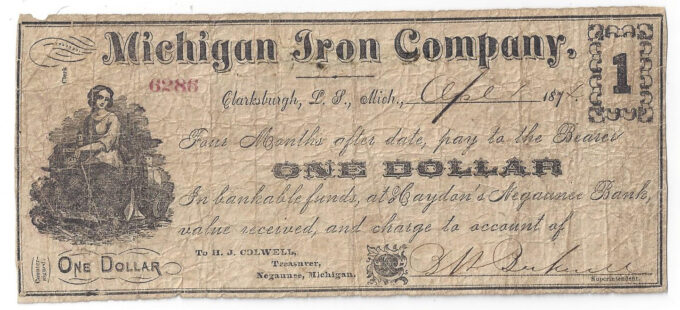 Michigan Iron Company,
1
6286
Clarksburgh, L. S., Mich., 1874.
Four Months after date, pay to the Bearer
ONE DOLLAR
In bankable funds, at Haydon's Negaunee Bank,
value received, and charge to account of
To H. J. COLWELL,
Treasurer,
Negaunee, Michigan.
Superintendent.
ONE DOLLAR